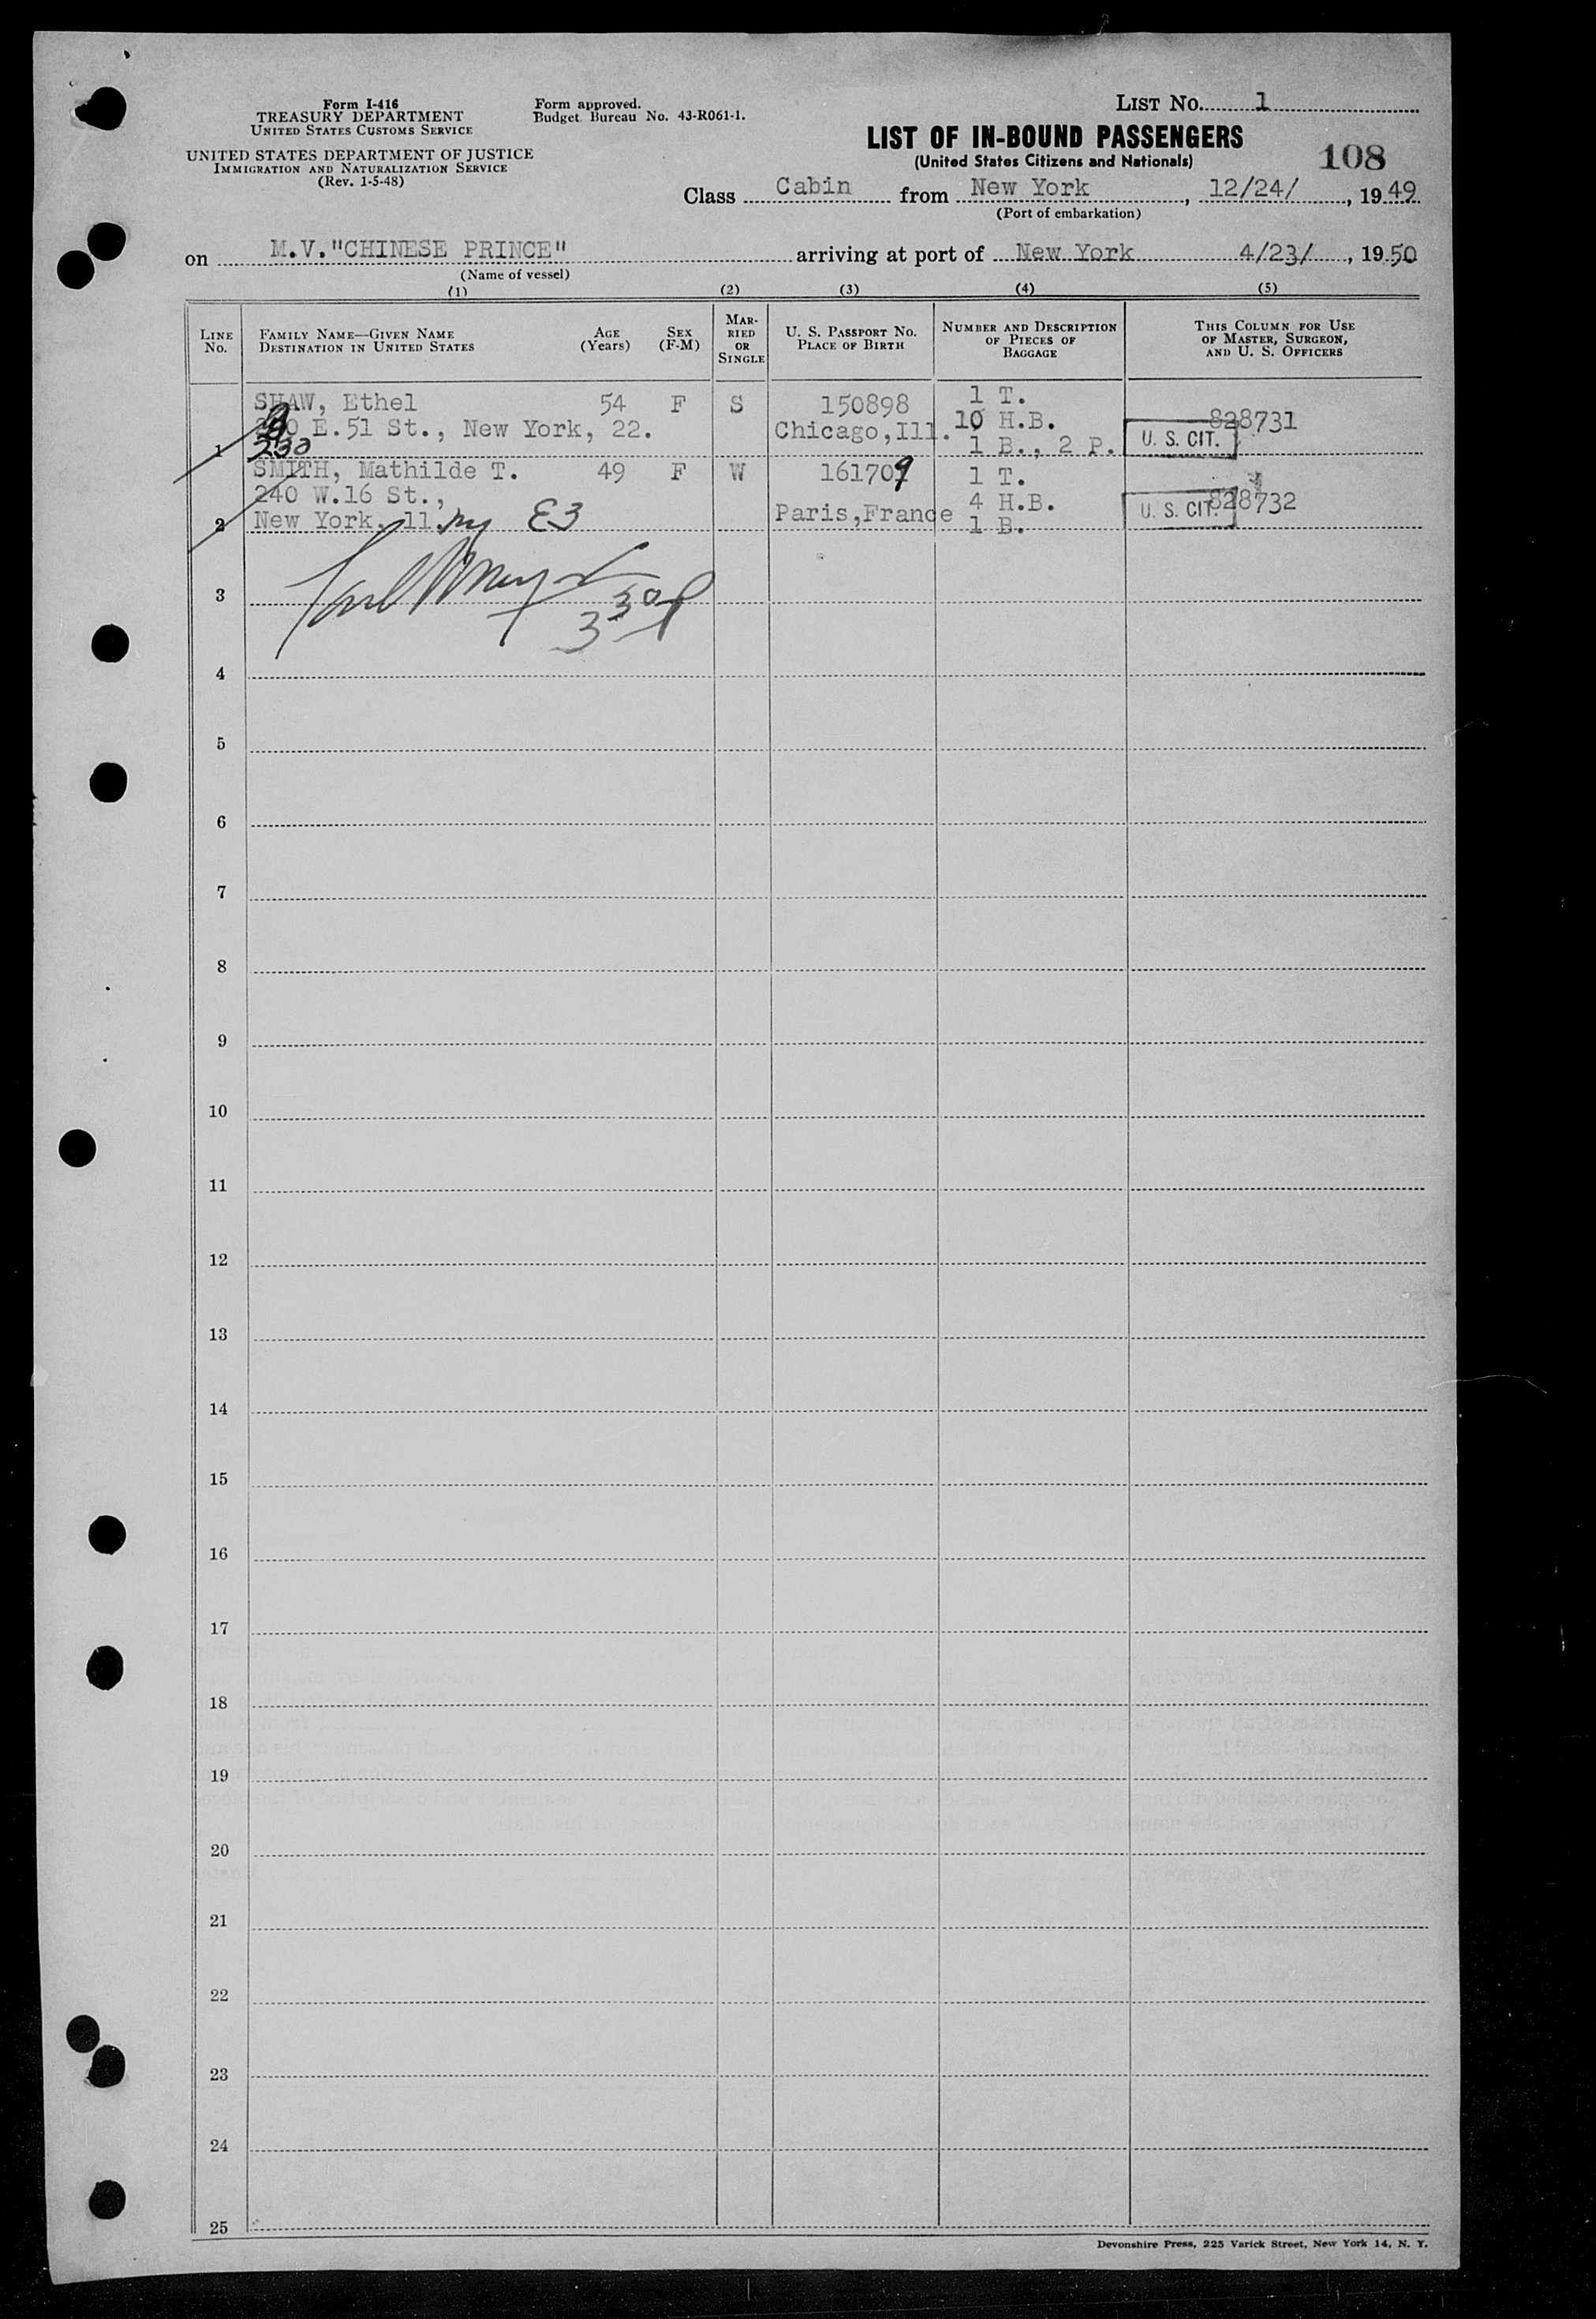 Form I-416
TREASURY DEPARTMENT
UNITED STATES CUSTOMS SERVICE
UNITED STATES DEPARTMENT OF JUSTICE
IMMIGRATION AND NATURALIZATION SERVICE
(Rev. 1-5-48)
Form approved.
Budget Bureau No. 43-R061-1.
LIST NO. 1
LIST OF IN-BOUND PASSENGERS
(United States Citizens and Nationals)
108
Class Cabin from New York, 12/24/, 1949
(Port of embarkation)
on M.V."CHINESE PRINCE" arriving at port of New York 4/23/, 1950
(Name of vessel)
(1) (2) (3) (4) (5)
LINE No. FAMILY NAME—GIVEN NAME DESTINATION IN UNITED STATES AGE (Years) SEX (F-M) MARRIED OR SINGLE U. S. PASSPORT NO. PLACE OF BIRTH NUMBER AND DESCRIPTION OF PIECES OF BAGGAGE THIS COLUMN FOR USE OF MASTER, SURGEON, AND U. S. OFFICERS
SHAW, Ethel 54 F S 150898 1 T.
E.51 St., New York, 22. Chicago,Ill. 10 H.B. 828731
1 230 1 B., 2 P. U. S. CIT.
SMITH, Mathilde T. 49 F W 161709 1 T.
240 W.16 St., 4 H.B. 828732
2 New York, 11, ny E3 Paris,France 1 B. U. S. CIT.
3
330
4
5
6
7
8
9
10
11
12
13
14
15
16
17
18
19
20
21
22
23
24
25
Devonshire Press, 225 Varick Street, New York 14, N. Y.